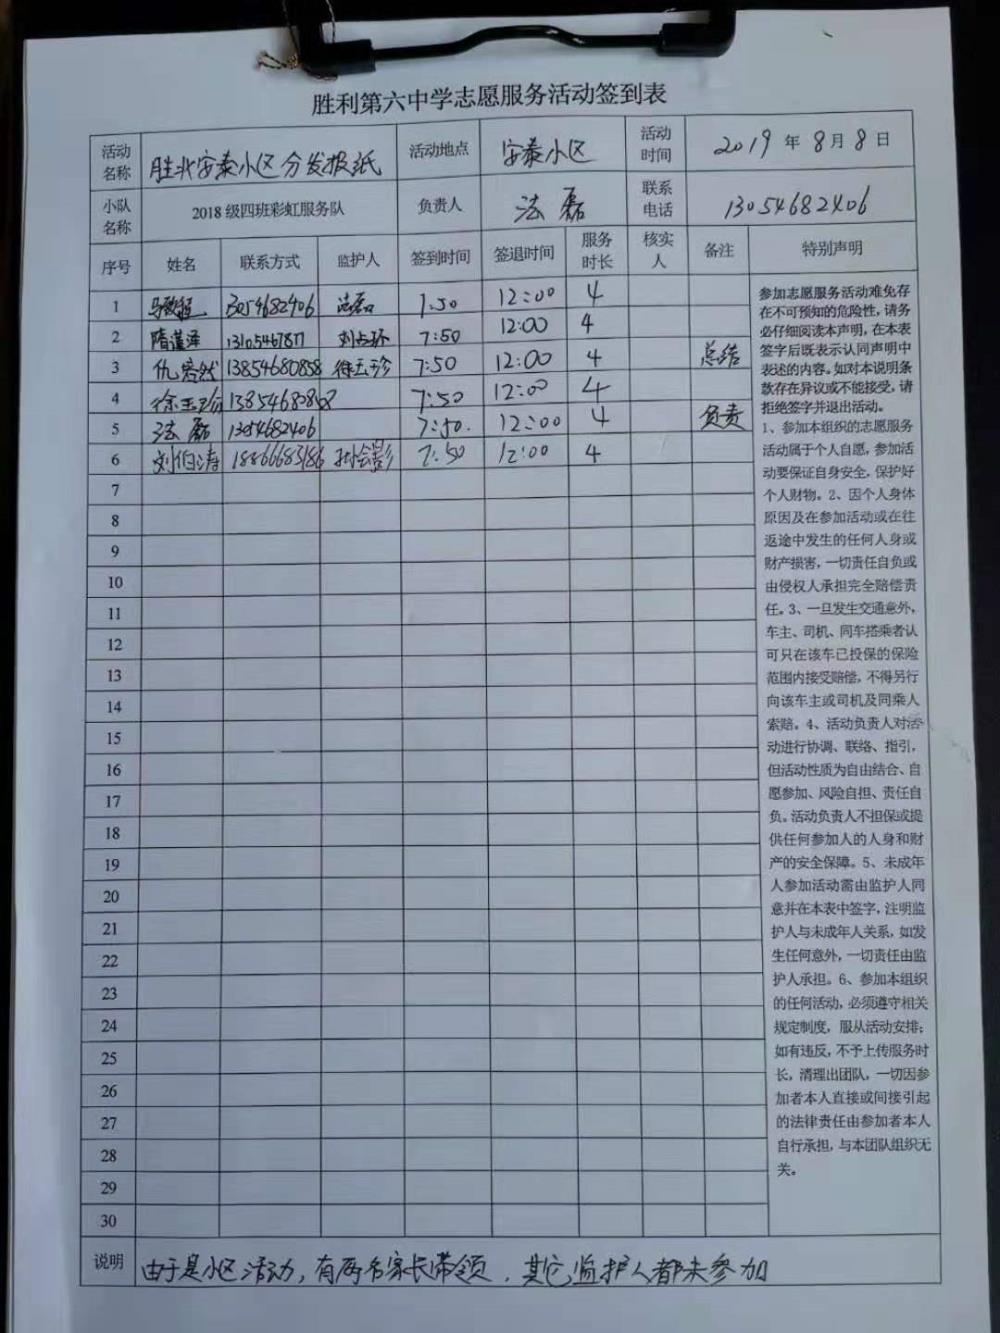 胜利第六中学志愿服务活动签到表
活动名称 胜北安泰小区分发报纸 活动地点 安泰小区 活动时间 2019年8月8日
小队名称 2018级四班彩虹服务队 负责人 法磊 联系电话 13054682406
序号 姓名 联系方式 监护人 签到时间 签退时间 服务时长 核实人 备注 特别声明
1 3054682406 法磊 7:50 12:00 4
2 隋莲泽 7:50 12:00 4
3 仇 然 13854680858 徐玉珍 7:50 12:00 4 总结
4 徐玉珍 7:50 12:00 4
5 法磊 13054682406 7:50. 12:00 4 负责
6 刘伯涛 18866683186 7:50 12:00 4
7
8
9
10
11
12
13
14
15
16
17
18
19
20
21
22
23
24
25
26
27
28
29
30
参加志愿服务活动难免存
在不可预知的危险性,请务
必仔细阅读本声明,在本表
签字后既表示认同声明中
表述的内容。如对本说明条
款存在异议或不能接受,请
拒绝签字并退出活动。
1、参加本组织的志愿服务
活动属于个人自愿,参加活
动要保证自身安全,保护好
个人财物。2、因个人身体
原因及在参加活动或在往
返途中发生的任何人身或
财产损害,一切责任自负或
由侵权人承担完全赔偿责
任。3、一旦发生交通意外,
车主、司机、同车搭乘者认
可只在该车已投保的保险
范围内接受赔偿,不得另行
向该车主或司机及同乘人
索赔。4、活动负责人对活
动进行协调、联络、指引,
但活动性质为自由结合、自
愿参加、风险自担、责任自
负。活动负责人不担保或提
供任何参加人的人身和财
产的安全保障。5、未成年
人参加活动需由监护人同
意并在本表中签字,注明监
护人与未成年人关系,如发
生任何意外,一切责任由监
护人承担。6、参加本组织
的任何活动,必须遵守相关
规定制度,服从活动安排;
如有违反,不予上传服务时
长,清理出团队,一切因参
加者本人直接或间接引起
的法律责任由参加者本人
自行承担,与本团队组织无
关。
说明 由于是小区活动,有两名家长带领,其它监护人都未参加